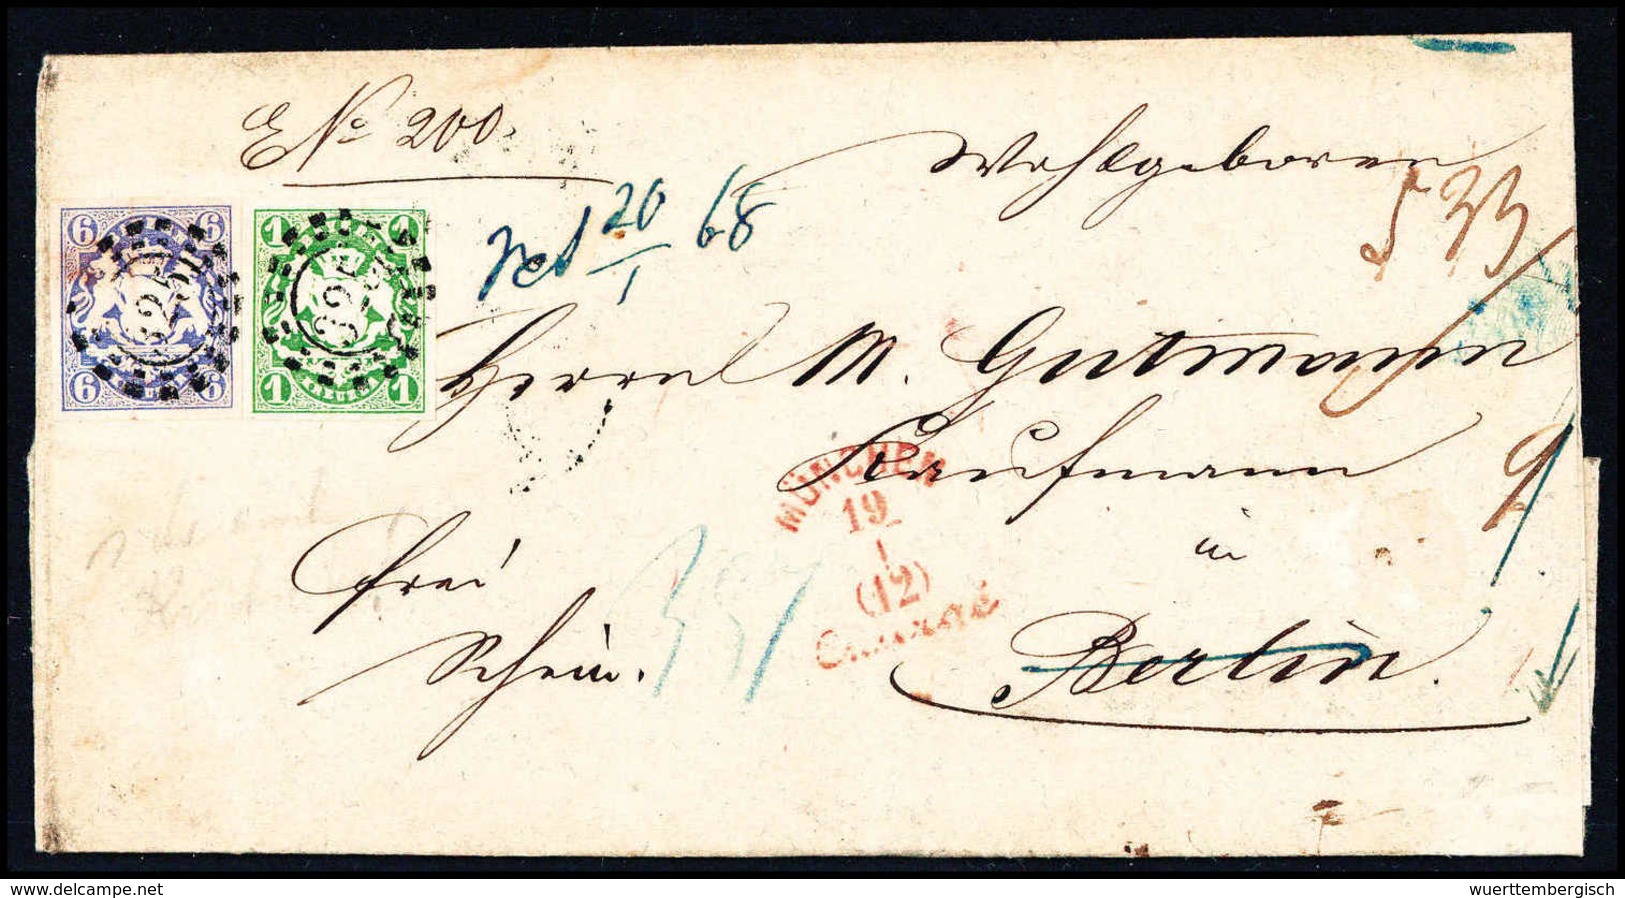 E No 200.
Wohlgeboren
20/1 68
533
6 6
6 6
1 1
1 1
KREUZER
325
325
Herrn M. Gutmann
Kaufmann
in
Berlin.
9
MÜNCHEN
19
1
(12)
Chargé
frei
Schein.
www.delcampe.net
wuerttembergisch